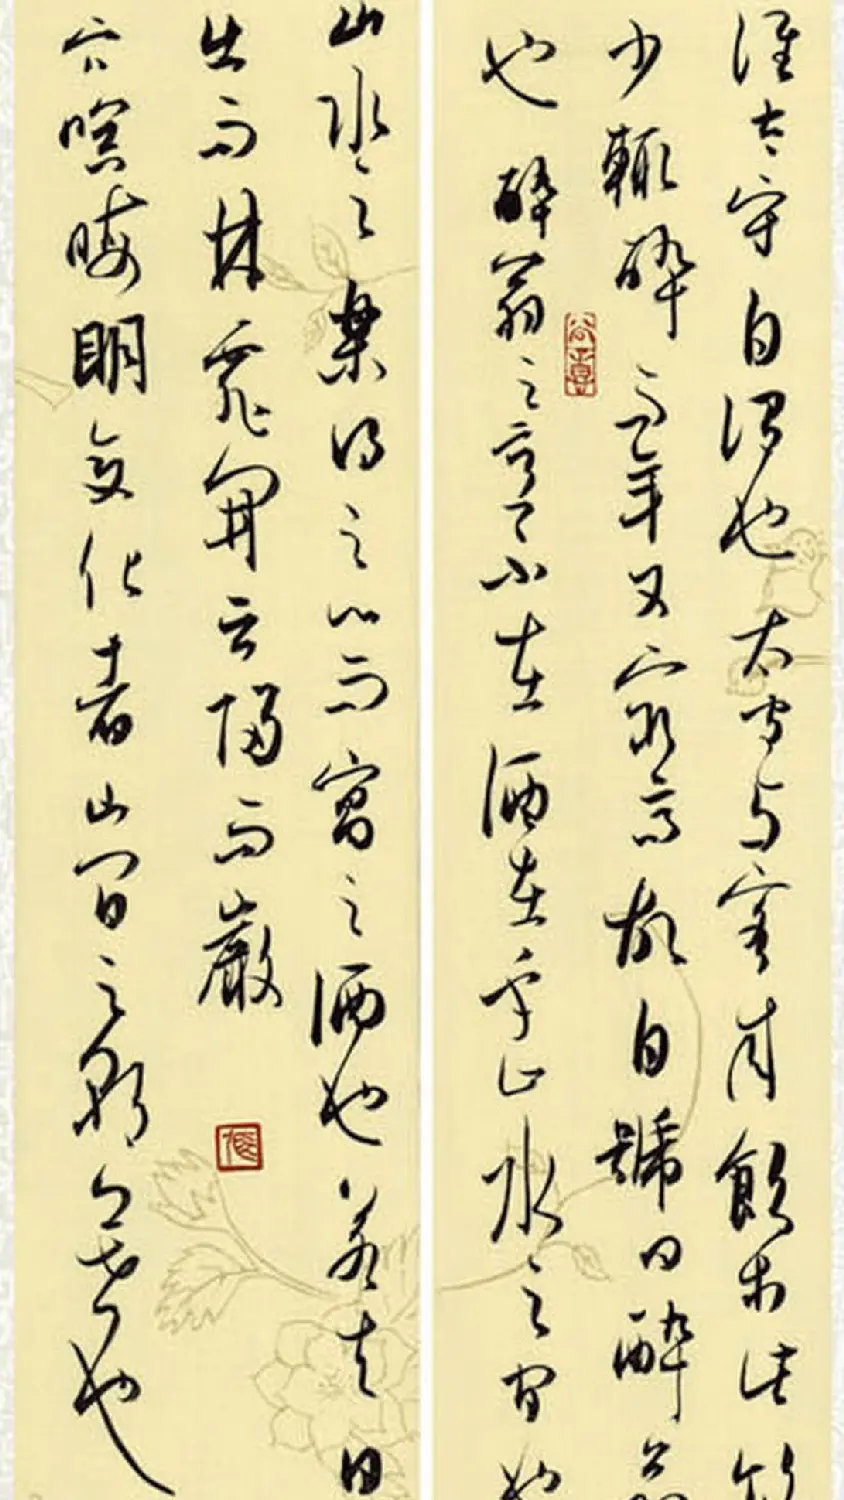 誰太守自謂也太守与客来飲於此飲
少輒醉而年又最高故自號曰醉翁
也醉翁之意不在酒在乎山水之間也
山水之樂得之心而寓之酒也若夫日
出而林霏開云歸而巖
穴暝晦明變化者山間之朝暮也